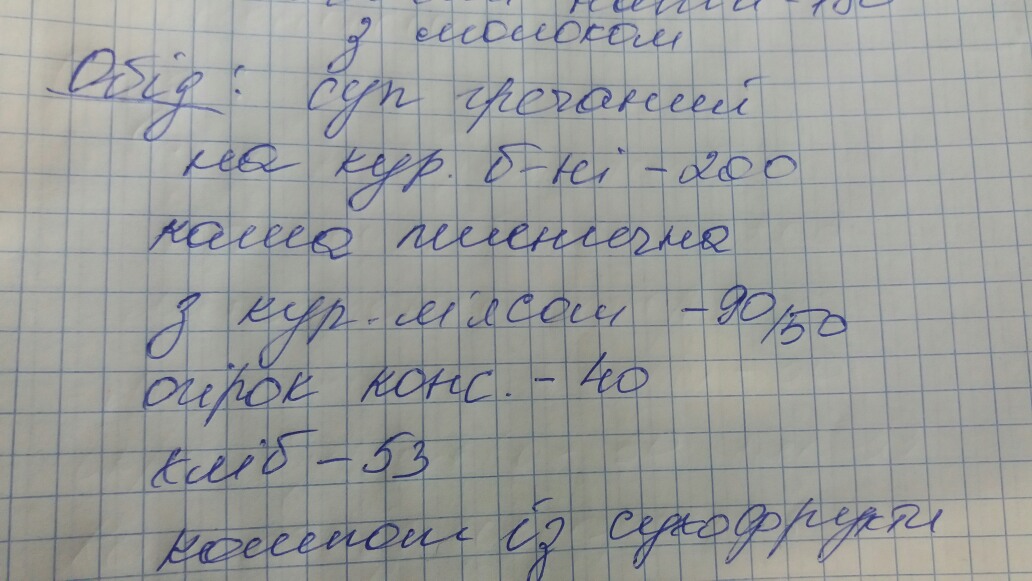 з молоком
Обід: суп гречаний
на кур. б-ні - 200
каша пшенична
з кур. м'ясом - 90/50
огірок конс. - 40
хліб - 53
компот із сухофрукти